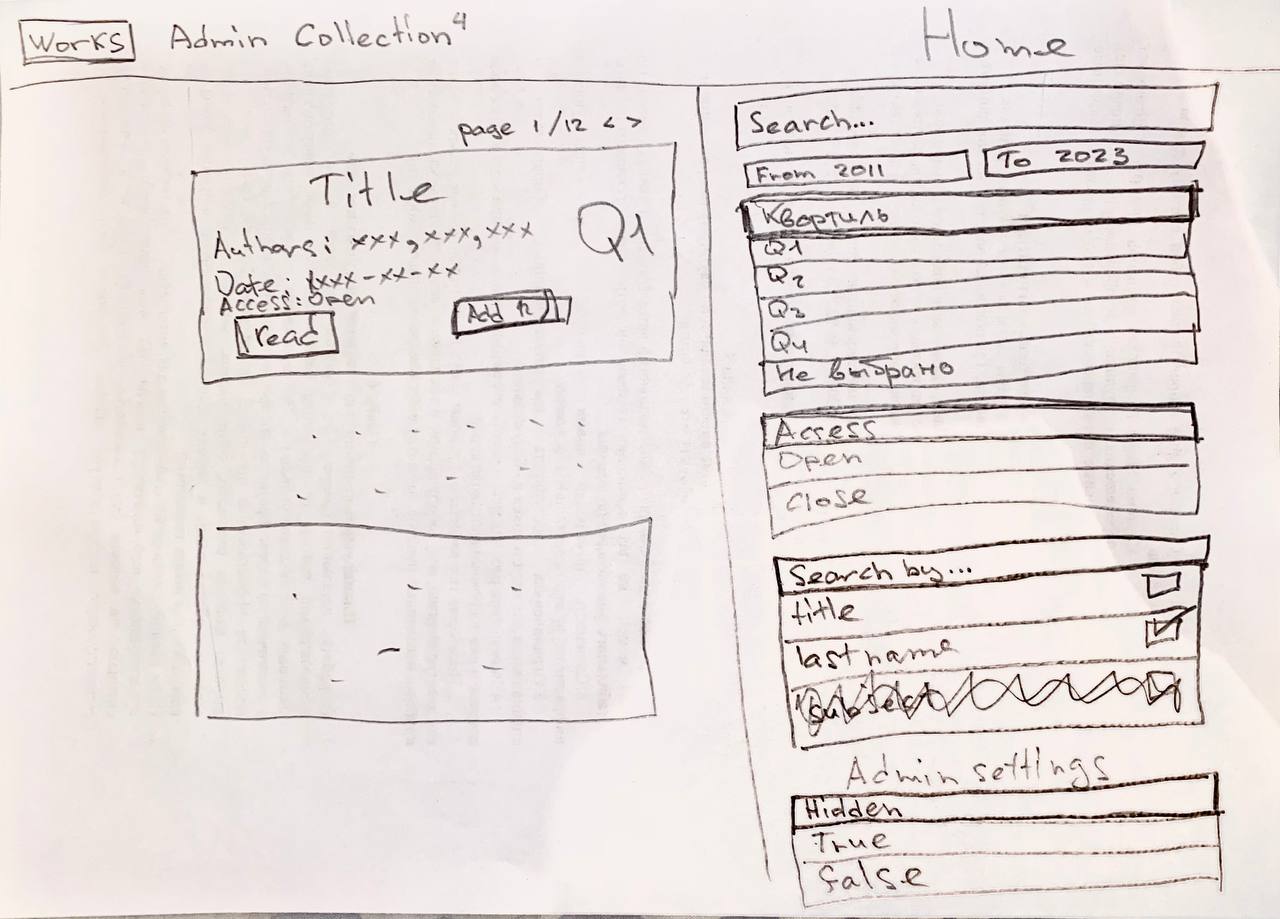 Works Admin Collection⁴
Home
page 1/12 < >
Title
Q1
Authors: xxx, xxx, xxx
Date: xxxx-xx-xx
Access: Open
read
Search...
From 2011
To 2023
Квартиль
Q1
Q2
Q3
Q4
Не выбрано
Access
Open
Close
Search by...
title
lastname
subject
Admin settings
Hidden
True
False